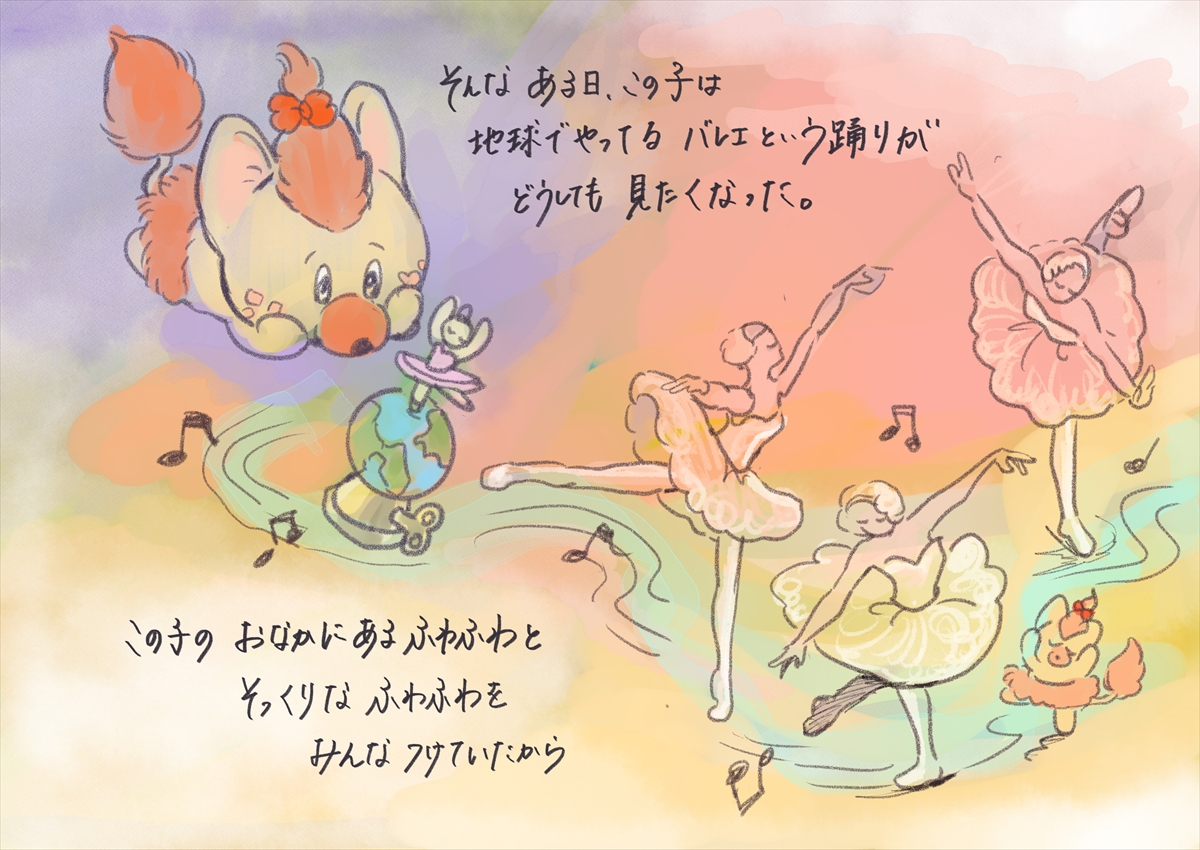 そんな ある日、この子は
地球でやってる バレエという踊りが
どうしても 見たくなった。
この子の おなかにある ふわふわと
そっくりな ふわふわを
みんな つけていたから